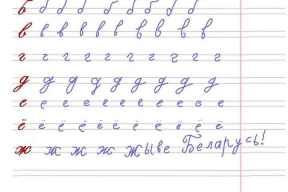 б б б б б б б б
в в в в в в в в в
г г г г г г г г г
д д д д д д д д д
е е е е е е е е е е
ё ё ё ё ё ё ё ё ё ё
ж ж ж ж ж ыве Беларусь!